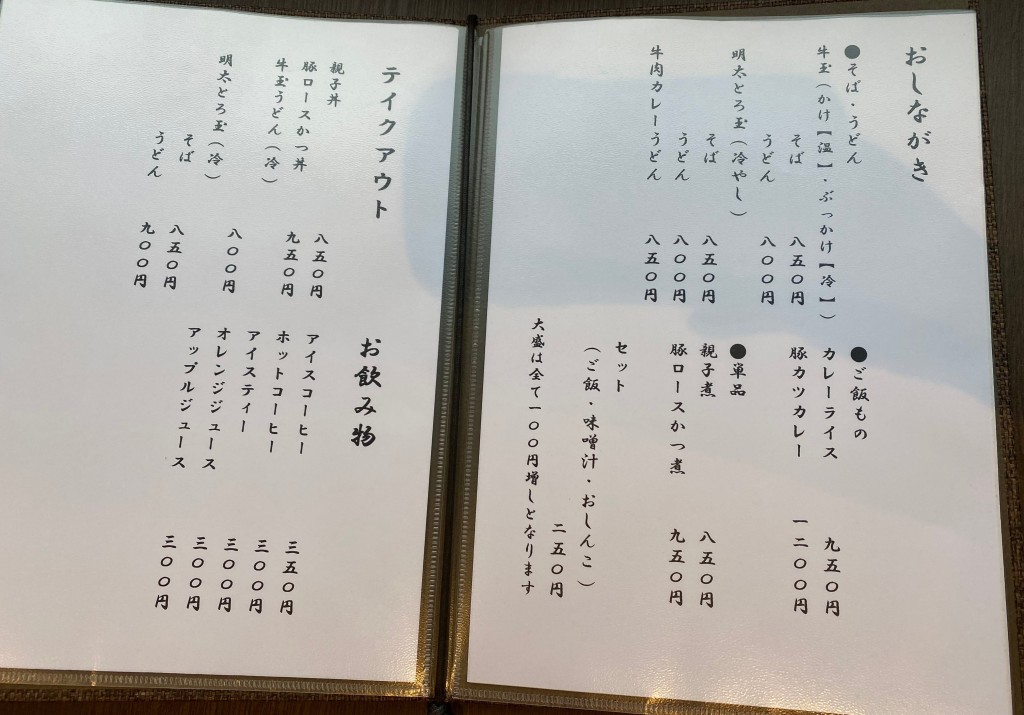 おしながき
●そば・うどん
牛玉(かけ【温】・ぶっかけ【冷】)
そば 八五〇円
うどん 八〇〇円
明太とろ玉(冷やし)
そば 八五〇円
うどん 八〇〇円
牛肉カレーうどん 八五〇円
●ご飯もの
カレーライス 九五〇円
豚カツカレー 一二〇〇円
●単品
親子煮 八五〇円
豚ロースかつ煮 九五〇円
セット
(ご飯・味噌汁・おしんこ)
二五〇円
大盛は全て一〇〇円増しとなります
テイクアウト
親子丼 八五〇円
豚ロースかつ丼 九五〇円
牛玉うどん(冷)
八〇〇円
明太とろ玉(冷)
そば 八五〇円
うどん 九〇〇円
お飲み物
アイスコーヒー 三五〇円
ホットコーヒー 三〇〇円
アイスティー 三〇〇円
オレンジジュース 三〇〇円
アップルジュース 三〇〇円